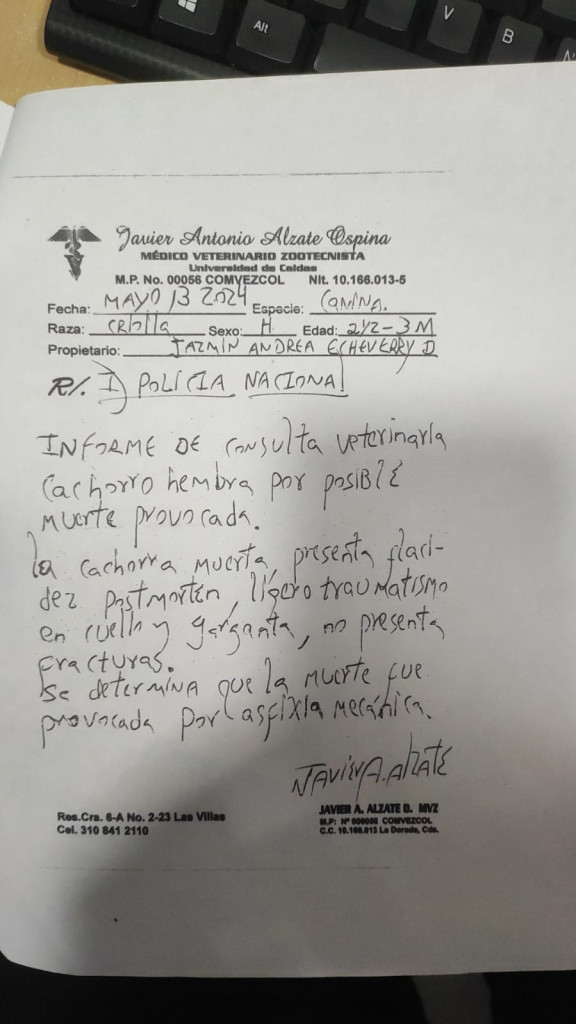 Alt
V
B
Javier Antonio Alzate Ospina
MÉDICO VETERINARIO ZOOTECNISTA
Universidad de Caldas
M.P. No. 00056 COMVEZCOL Nit. 10.166.013-5
Fecha: MAYO 13 2024 Especie: CANINA.
Raza: CRIOLLA Sexo: H Edad: 2 1/2 - 3 M
Propietario: JAZMIN ANDREA ECHEVERRY D
R/. POLICIA NACIONAL
INFORME DE CONSULTA veterinaria
cachorro hembra por posiblE
muerte provocada.
la cachorra muerta, presenta flaci-
dez postmorten, ligero traumatismo
en cuello y garganta, no presenta
fracturas.
se determina que la muerte fue
provocada por asfixia mecánica.
JAvier A. Alzate
Res.Cra. 6-A No. 2-23 Las Villas
Cel. 310 841 2110
JAVIER A. ALZATE O. MVZ
M.P: Nº 000056 COMVEZCOL
C.C. 10.166.013 La Dorada, Cds.